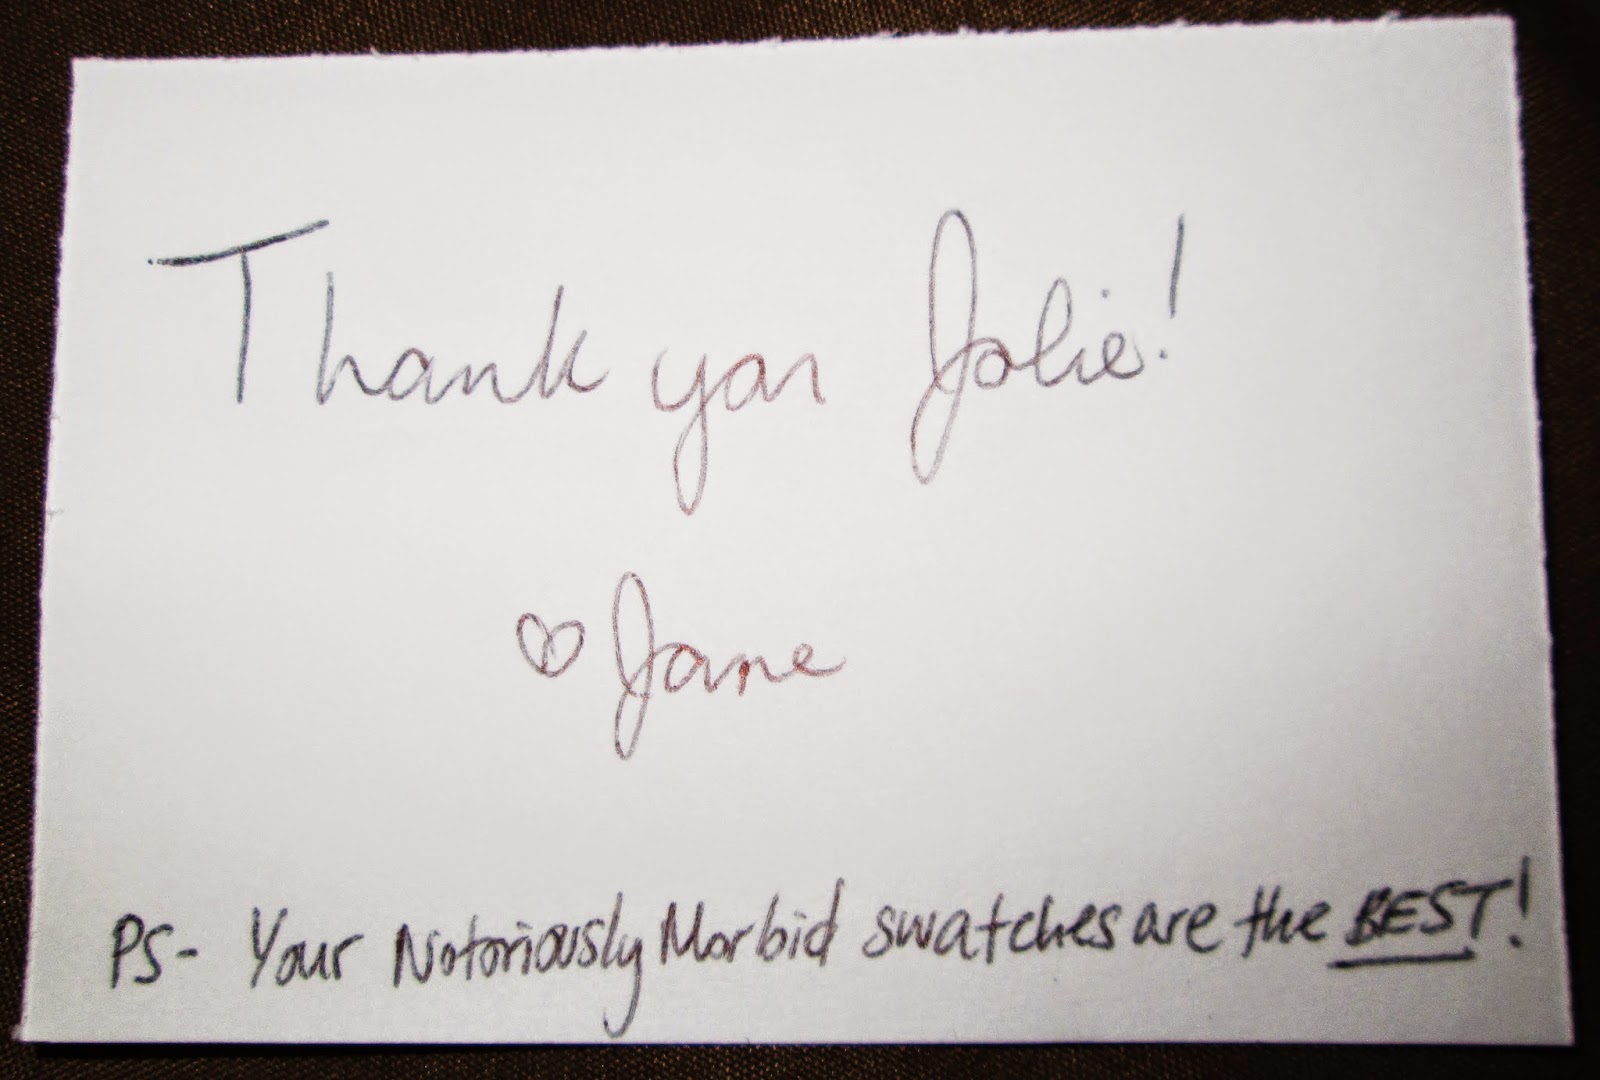 Thank you Jolie!
♡ Jane
PS- Your Notoriously Morbid swatches are the BEST!